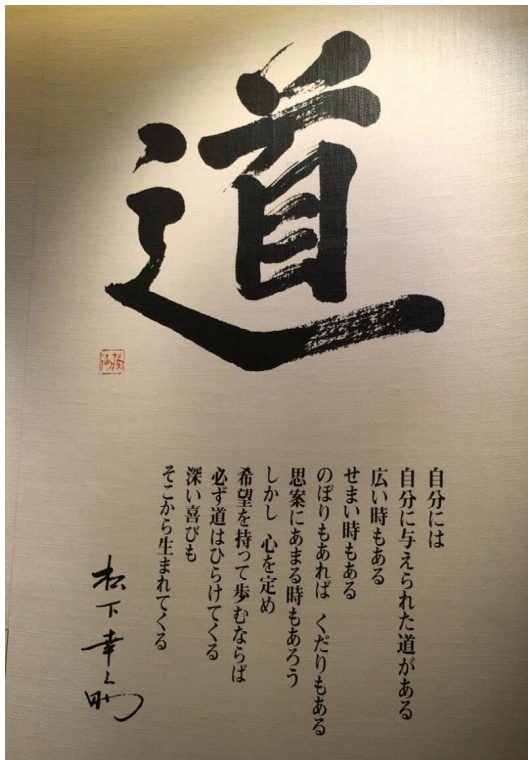 道
自分には
自分に与えられた道がある
広い時もある
せまい時もある
のぼりもあれば　くだりもある
思案にあまる時もあろう
しかし　心を定め
希望を持って歩むならば
必ず道はひらけてくる
深い喜びも
そこから生まれてくる
松下幸之助